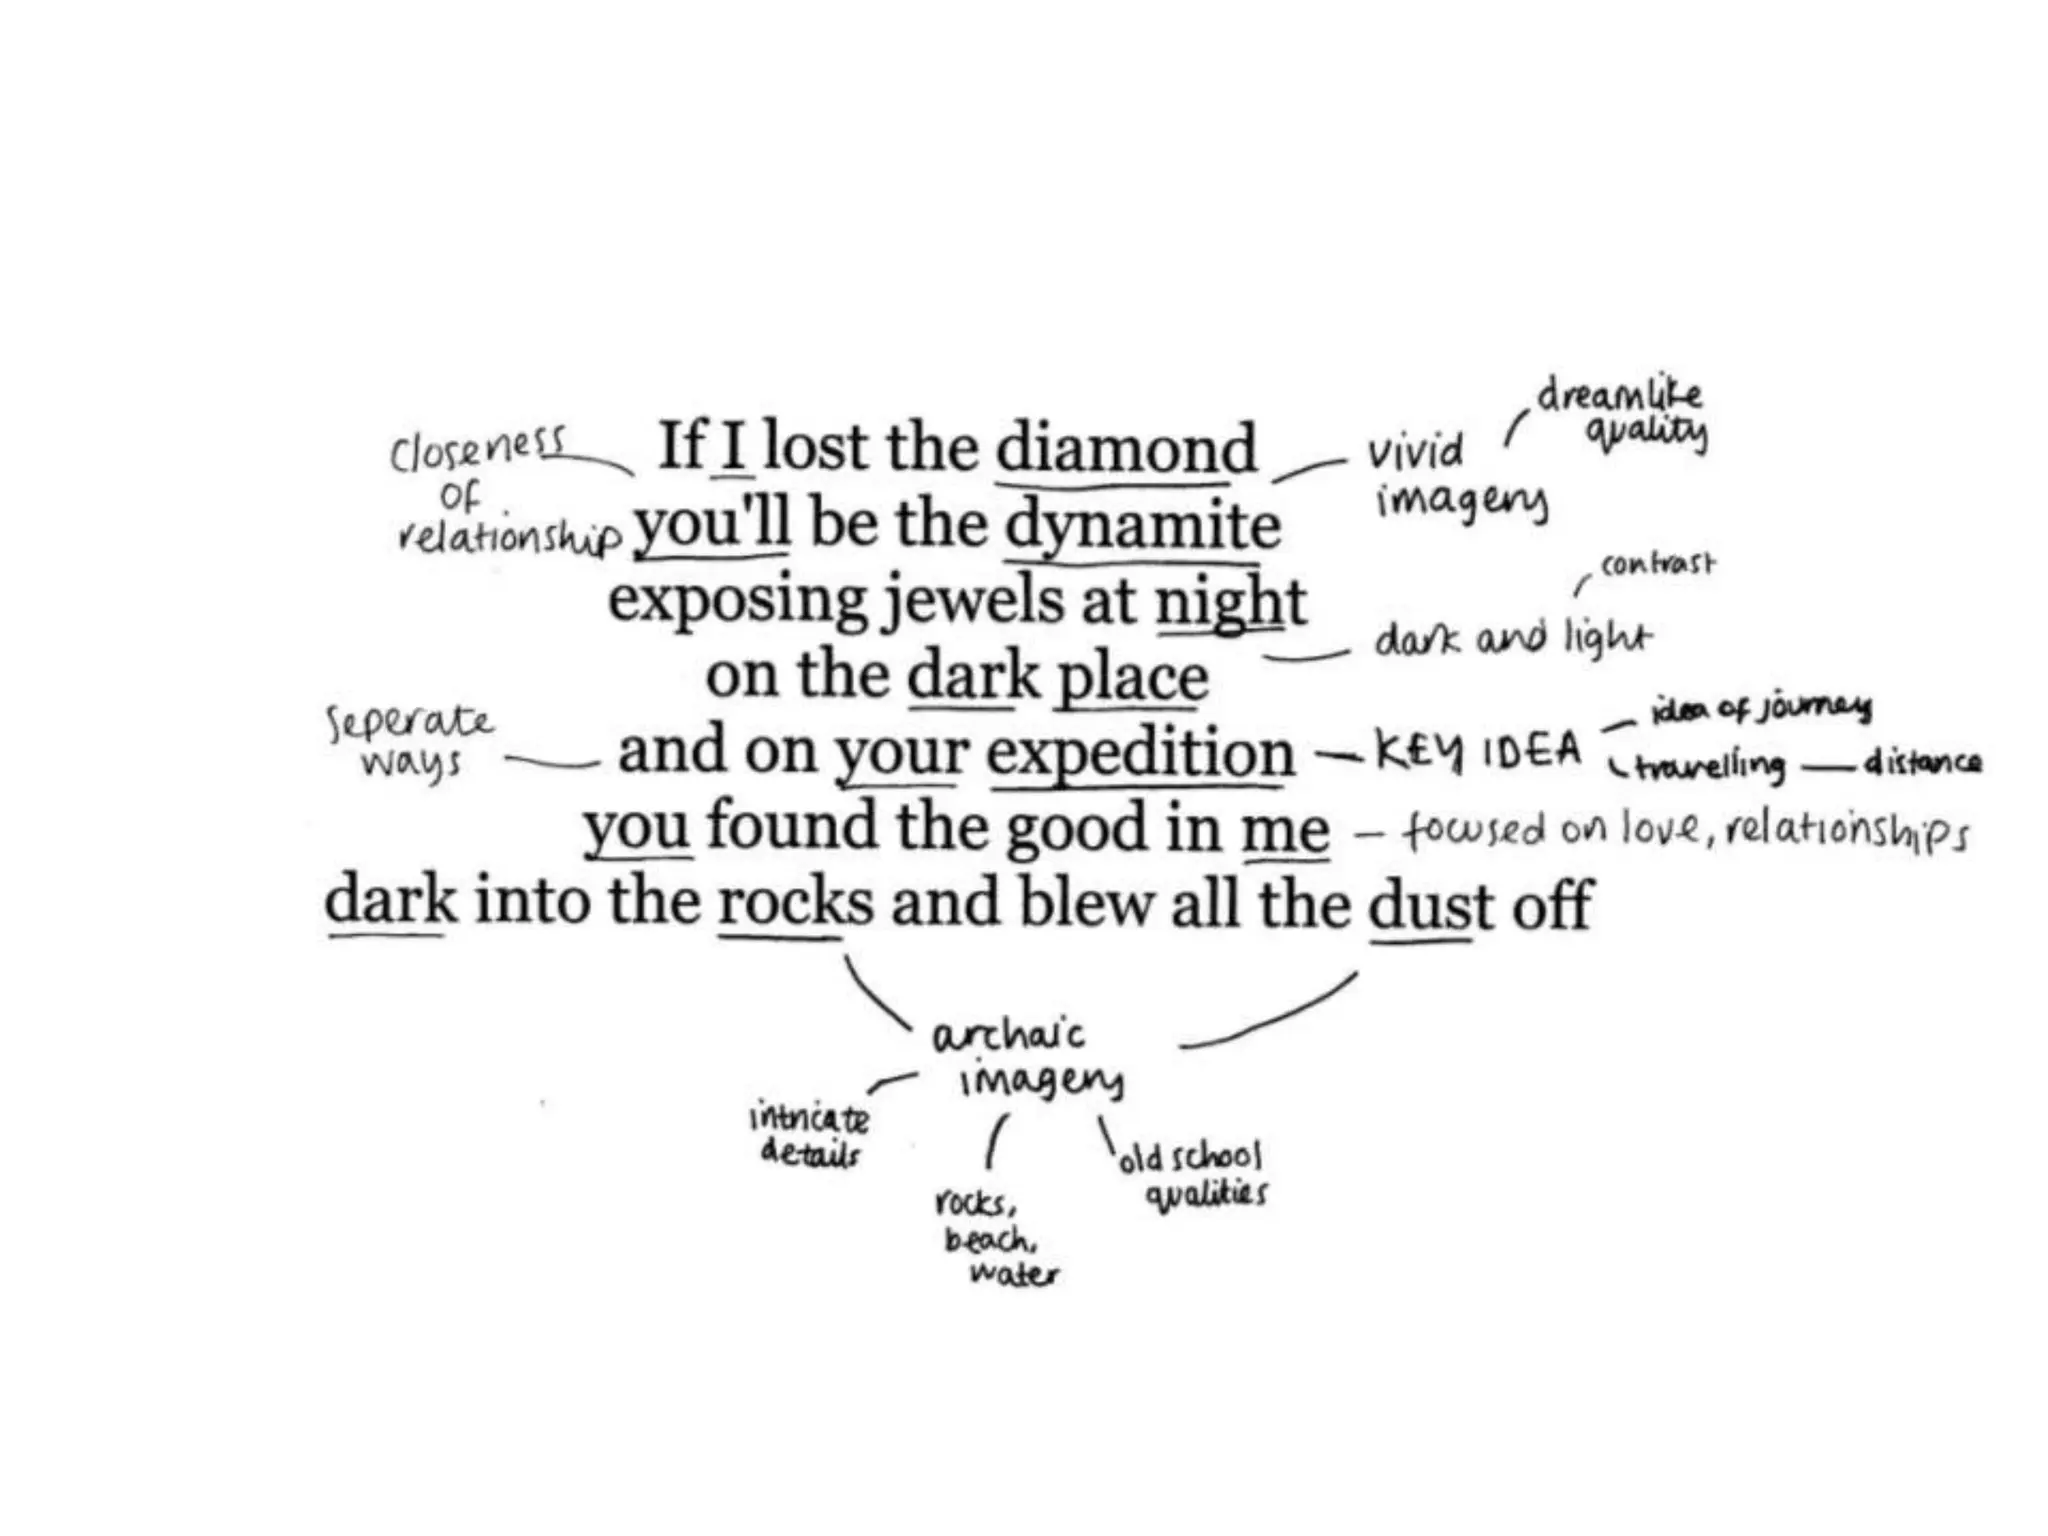 dreamlike
quality
closeness
of
relationship
If I lost the diamond
vivid
imagery
you'll be the dynamite
contrast
exposing jewels at night
dark and light
on the dark place
seperate
ways
and on your expedition
KEY IDEA
idea of journey
travelling — distance
you found the good in me
– focused on love, relationships
dark into the rocks and blew all the dust off
archaic
imagery
intricate
details
rocks,
beach,
water
old school
qualities